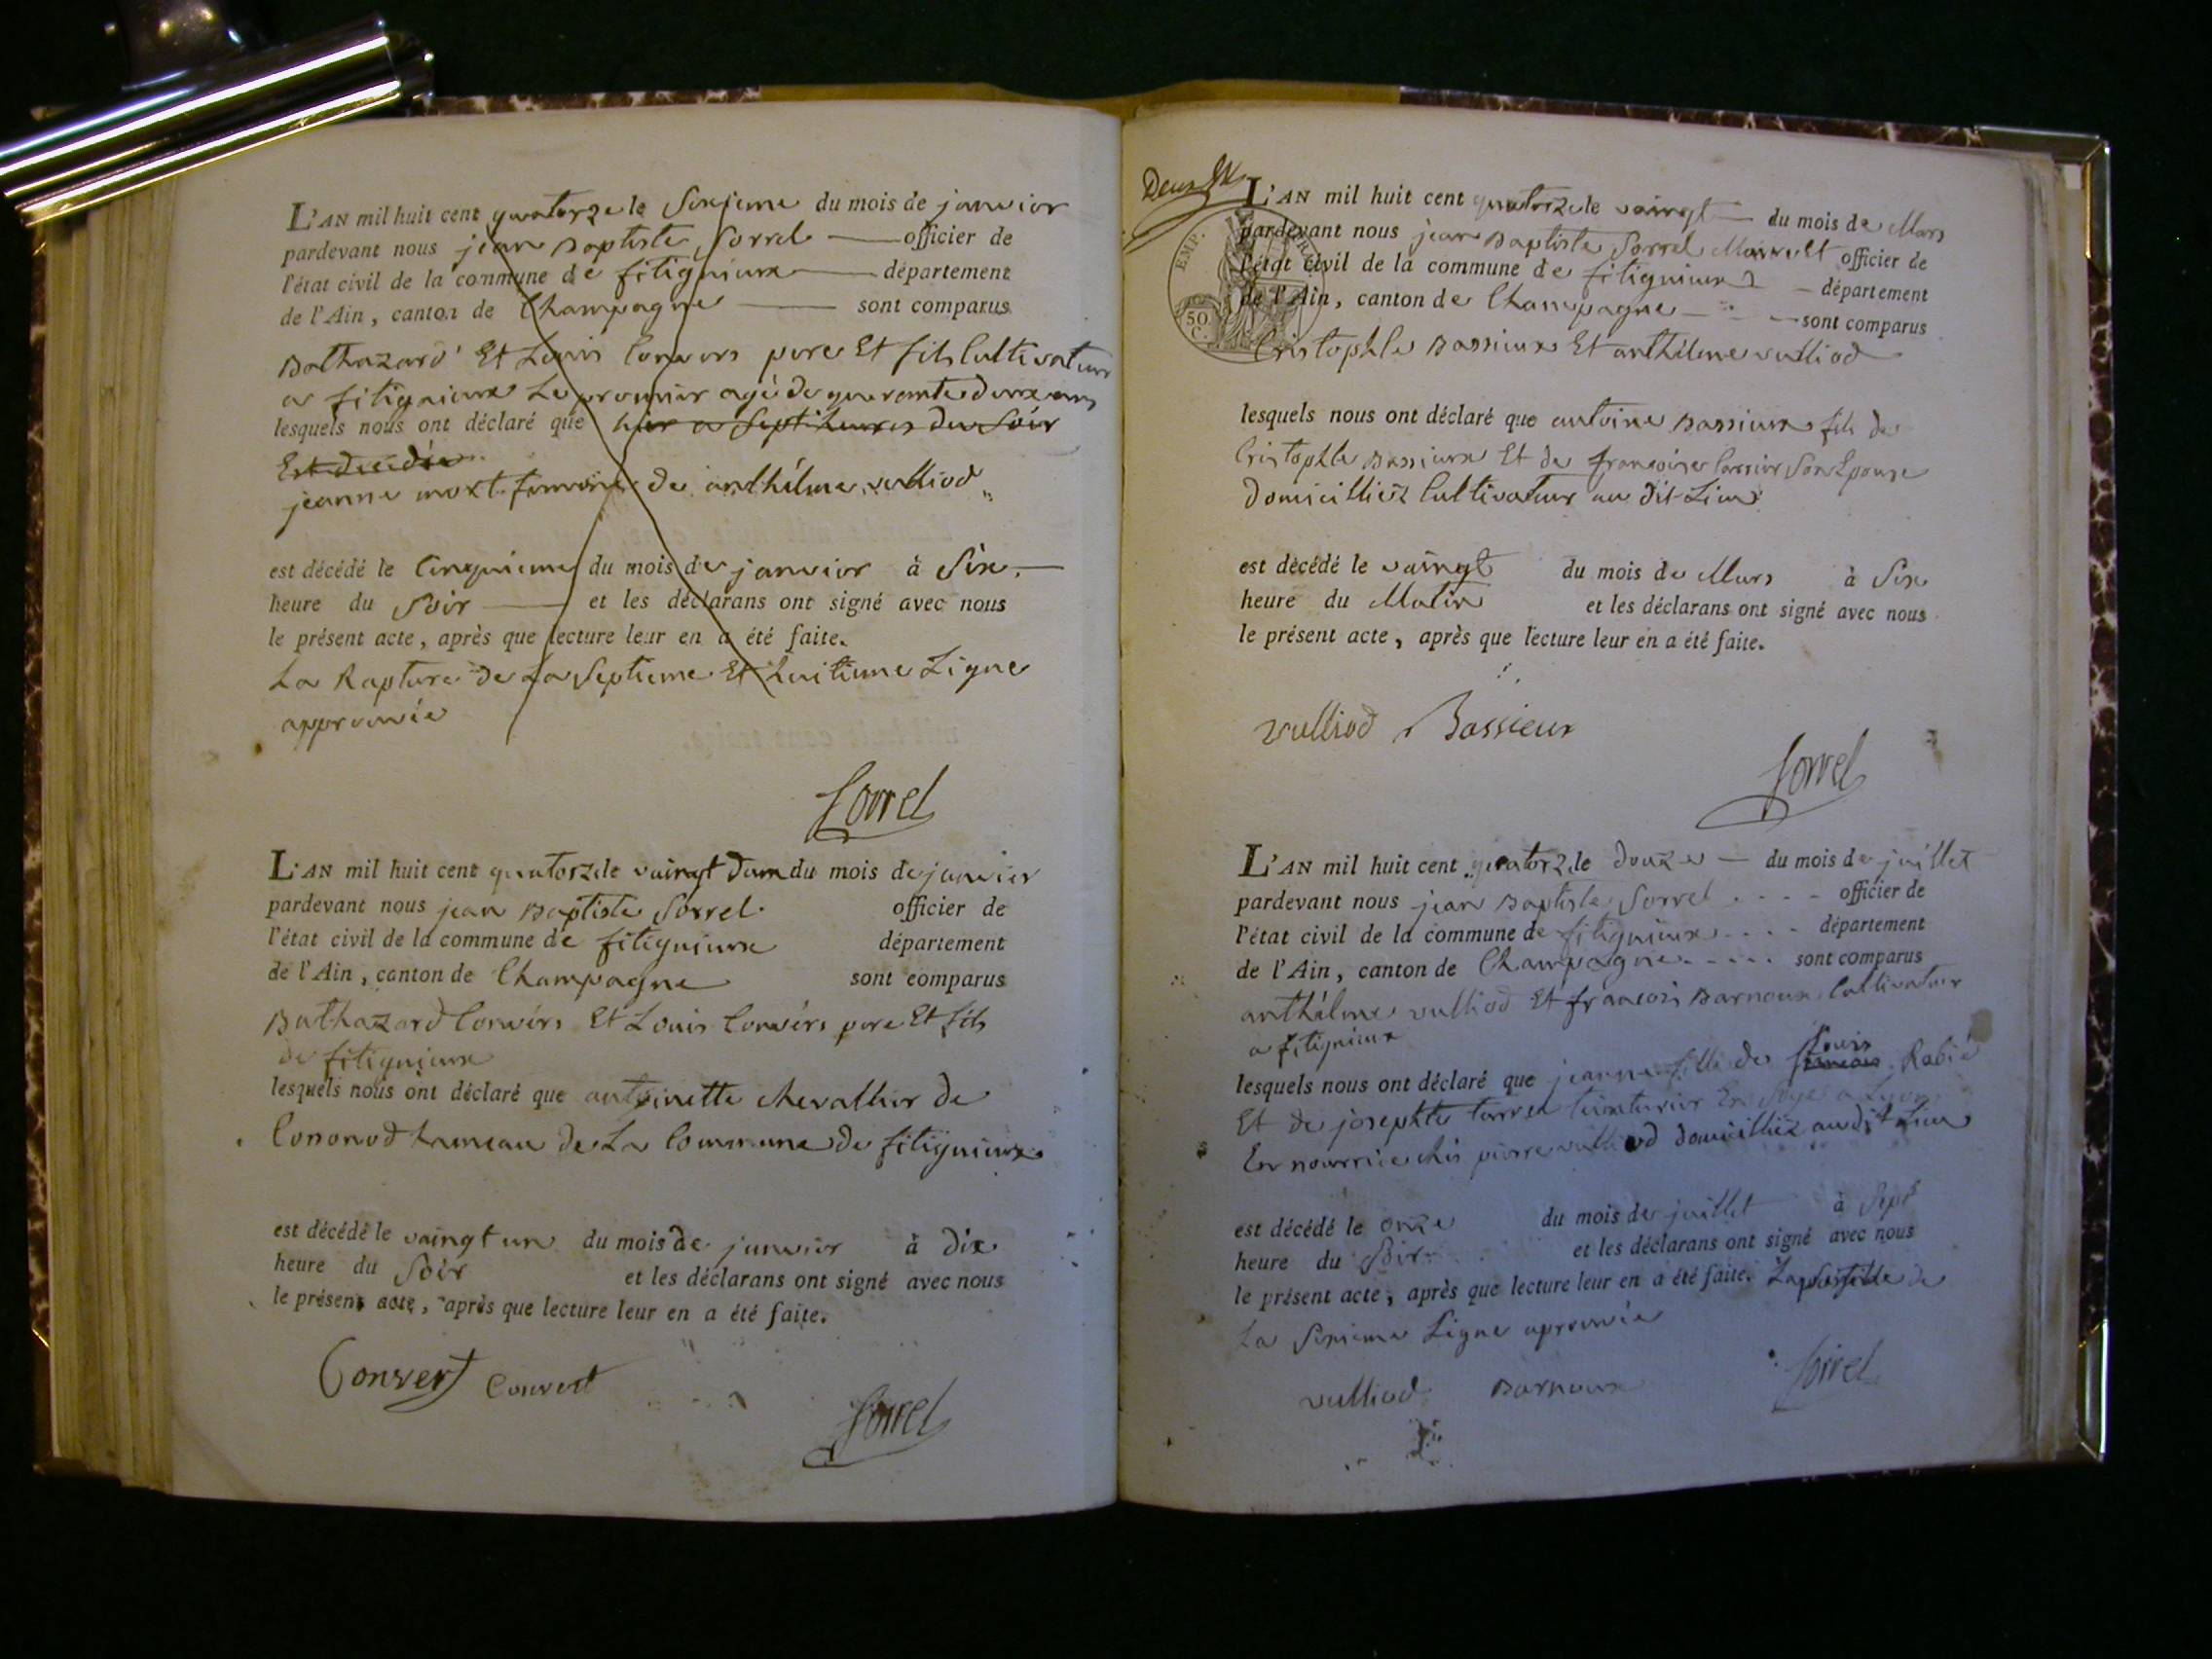 L'AN mil huit cent quatorze le Sixieme du mois de janvier
pardevant nous jean Baptiste Sorrel officier de
l'état civil de la commune de fitignieux département
de l'Ain, canton de Champagne sont comparus
Balthazard Et Louis Convers pere Et fils Cultivateur
a fitignieux Le premier agé de quarante deux ans
lesquels nous ont déclaré que hier a Sept heures du Soir
Est decedée
jeanne mort femme de anthelme vulliod
est décédé le Cinquieme du mois de janvier à Six
heure du Soir et les déclarans ont signé avec nous
le présent acte, après que lecture leur en a été faite.
La Rapture de La Septieme Et huitieme Ligne
approuvée
Sorrel
L'AN mil huit cent quatorze le vaingt deux du mois de janvier
pardevant nous jean Baptiste Sorrel officier de
l'état civil de la commune de fitignieux département
de l'Ain, canton de Champagne sont comparus
Balthazard Convers Et Louis Convers pere Et fils
de fitignieux
lesquels nous ont déclaré que antoinette chevallier de
Cononod hameau de La Commune de fitignieux
est décédé le vaingt un du mois de janvier à dix
heure du Soir et les déclarans ont signé avec nous
le présent acte, après que lecture leur en a été faite.
Convert Convert
Sorrel
Deux
EMP.
50
C.
L'AN mil huit cent quatorze le vaingt du mois de Mars
pardevant nous jean Baptiste Sorrel Maire Et officier de
l'état civil de la commune de fitignieux département
de l'Ain, canton de Champagne sont comparus
Cristophle Bassieux Et anthelme vulliod
lesquels nous ont déclaré que antoine Bassieux fils de
Cristophle Bassieux Et de françoise Son Epouse
domicilliéz Cultivateur au dit Lieu
est décédé le vaingt du mois de Mars à Six
heure du Matin et les déclarans ont signé avec nous
le présent acte, après que lecture leur en a été faite.
vulliod Bassieux
Sorrel
L'AN mil huit cent quatorze le douze du mois de juillet
pardevant nous jean Baptiste Sorrel officier de
l'état civil de la commune de fitignieux département
de l'Ain, canton de Champagne sont comparus
anthelme vulliod Et francois Barnoux Cultivateur
a fitignieux
Louis
lesquels nous ont déclaré que jeanne fille de francois Rabié
Et de josephte teinturier En Soye a Lyon
En nourrice chés pierre vulliod domicilliéz audit Lieu
est décédé le onze du mois de juillet à Sept
heure du Soir et les déclarans ont signé avec nous
le présent acte, après que lecture leur en a été faite. Lapostille de
La Sixieme Ligne aprouvée
vulliod Barnoux Sorrel